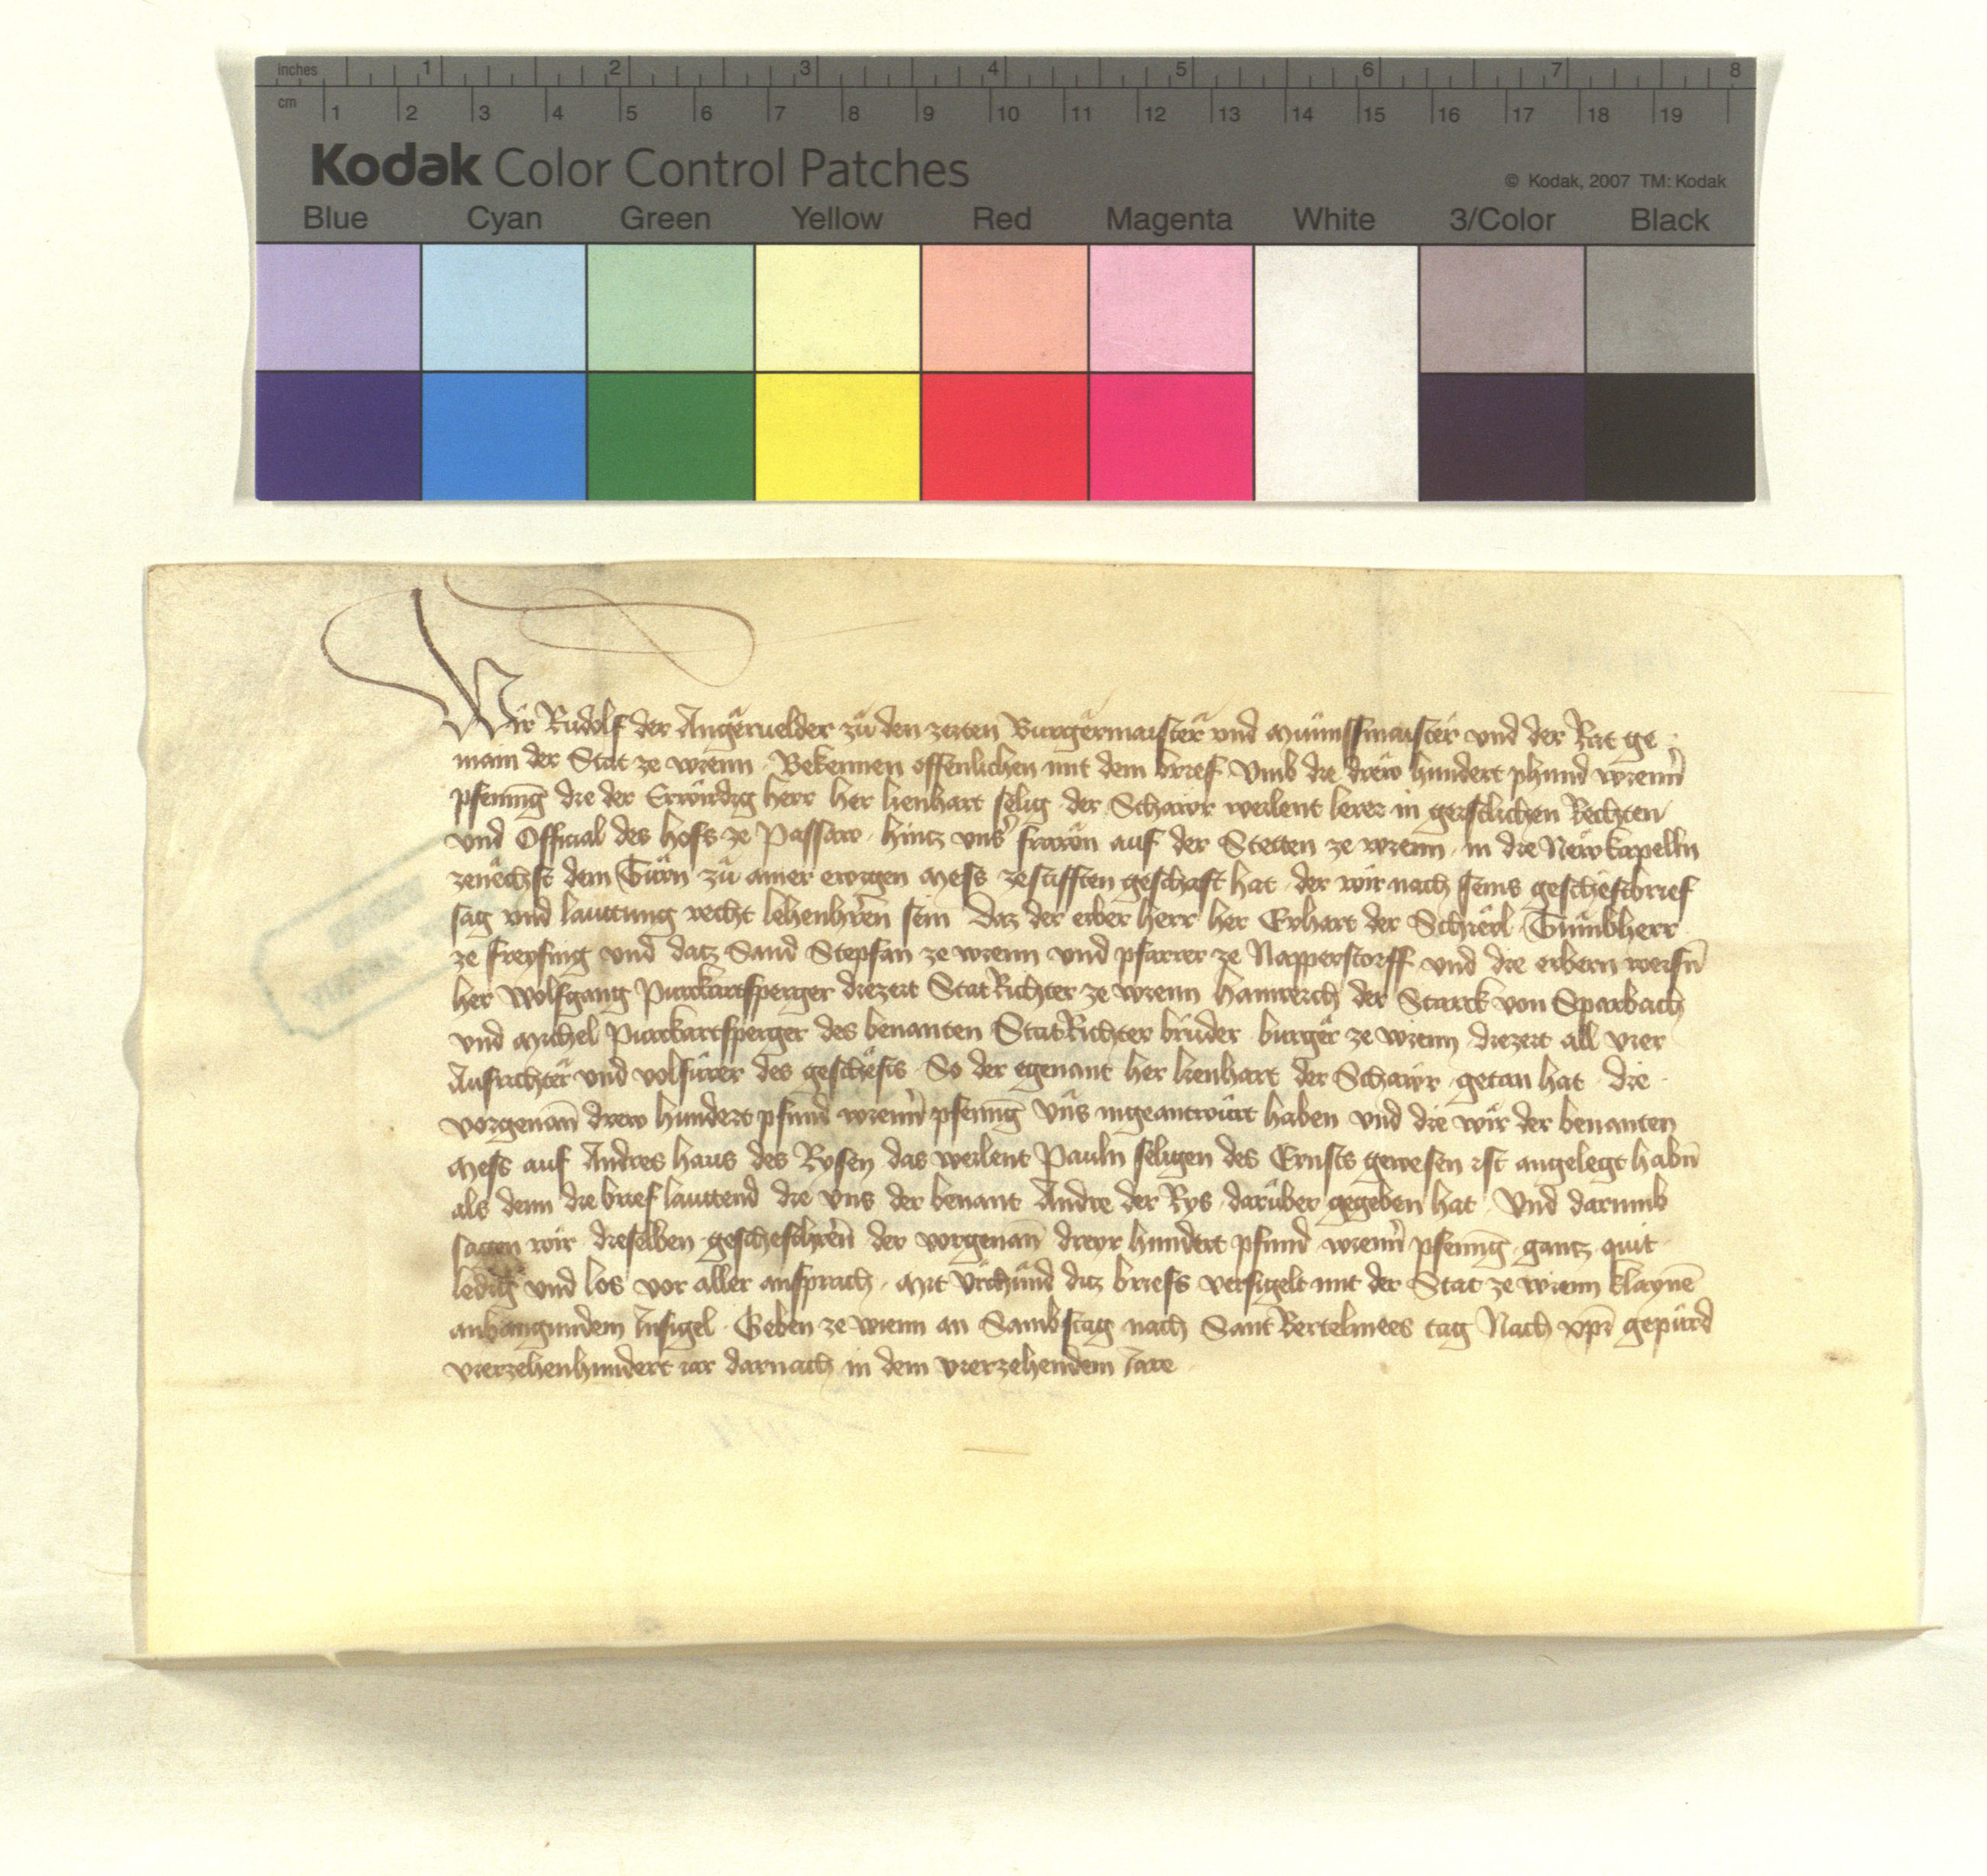 inches 1 2 3 4 5 6 7 8
cm 1 2 3 4 5 6 7 8 9 10 11 12 13 14 15 16 17 18 19
Kodak Color Control Patches
© Kodak, 2007 TM: Kodak
Blue Cyan Green Yellow Red Magenta White 3/Color Black
Wir Rudolf der Angeruelder zů den zeiten Burgermaister und Münssmaister und der Rat ge
main der Stat ze wienn Bekennen offenlichen mit dem brief Vmb die drew hundert phund wienn̄
pfennīg die der Erwirdig herr her lienhart selig der Schawr weilent lerer in geistlichen Rechten
und Official des hofs ze Passaw hintz uns̄ frawn auf der Stetten ze wienn in die New kapelln
zenechst dem Turn zů ainer ewigen Mess zestifften geschaft hat der wir nach seins geschefftbrief
sag und lauttung recht lehenhrēn sein Daz der erber herr her Erhart der Schierl Tumbherr
ze freysing und datz Sand Stephan ze wienn und pfarrer ze Napperstorff und die erbern weisn̄
her Wolfgang Purckartsperger diezeit StatRichter ze wienn Hainreich der Starck von Sparbach
und Michel Purckartsperger des benanten StatRichter brůder burger ze wienn diezeit all vier
Ausrichter und volfürer des gescheffts So der egenant her lienhart der Schawr getan hat die
vorgenan̄ drew hundert pfund wienn̄ pfennīg vns ingeantwurt haben und die wir der benanten
Mess auf Andres haus des Rysen das weilent Pauln seligen des Ernsts gewesen ist angelegt habn̄
als denn die brief lauttend die vns der benant Andre der Rys darüber gegeben hat Und darumb
sagen wir dieselben gescheffthrēn der vorgenan̄ dreyr hundert pfund wienn̄ pfennīg gantz quit
ledig und los vor aller ansprach Mit Vrchund ditz briefs versigelt mit der Stat ze wienn klaynē
anhangundem Insigel Geben ze wienn an Sambstag nach Sant Bertelmees tag Nach xp̄i gepurd
vierzehenhundert iar darnach in dem vierzehendem Jare